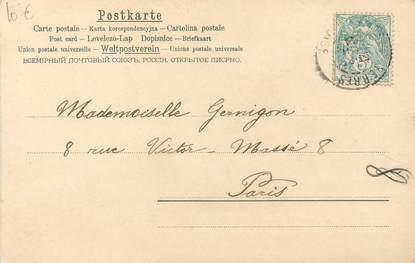 10 €
Postkarte
Carte postale — Karta korespondencyjna — Cartolina postale
Post card — Levelező-Lap Dopisnice — Briefkaart
Union postale universelle — Weltpostverein — Unione postale universale
ВСЕМІРНЫЙ ПОЧТОВЫЙ СОЮЗЪ. РОССІЯ. ОТКРЫТОЕ ПИСЬМО.
Mademoiselle Gernigon
8 rue Victor-Massé 8
Paris